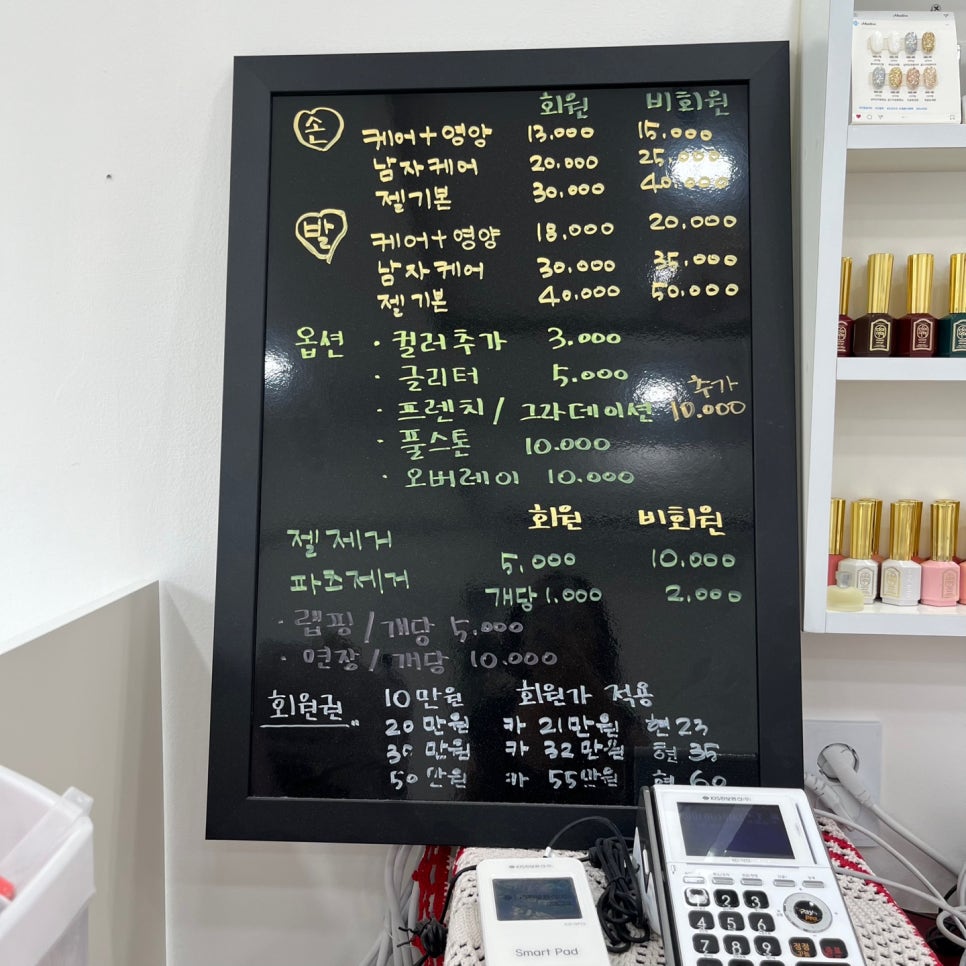 회원 비회원
손 케어+영양 13,000 15,000
남자케어 20,000 25,000
젤기본 30,000 40,000
발 케어+영양 18,000 20,000
남자케어 30,000 35,000
젤기본 40,000 50,000
옵션 · 컬러추가 3.000
· 글리터 5.000
추가
· 프렌치/그라데이션 10.000
· 풀스톤 10.000
· 오버레이 10.000
회원 비회원
젤제거 5,000 10,000
파츠제거 개당 1.000 2,000
· 랩핑/개당 5,000
· 연장/개당 10.000
회원권 10만원 회원가 적용
20만원 카 21만원 현 23
30만원 카 32만원 현 35
50만원 카 55만원 현 60
Smart Pad
1 2 3
4 5 6
7 8 9